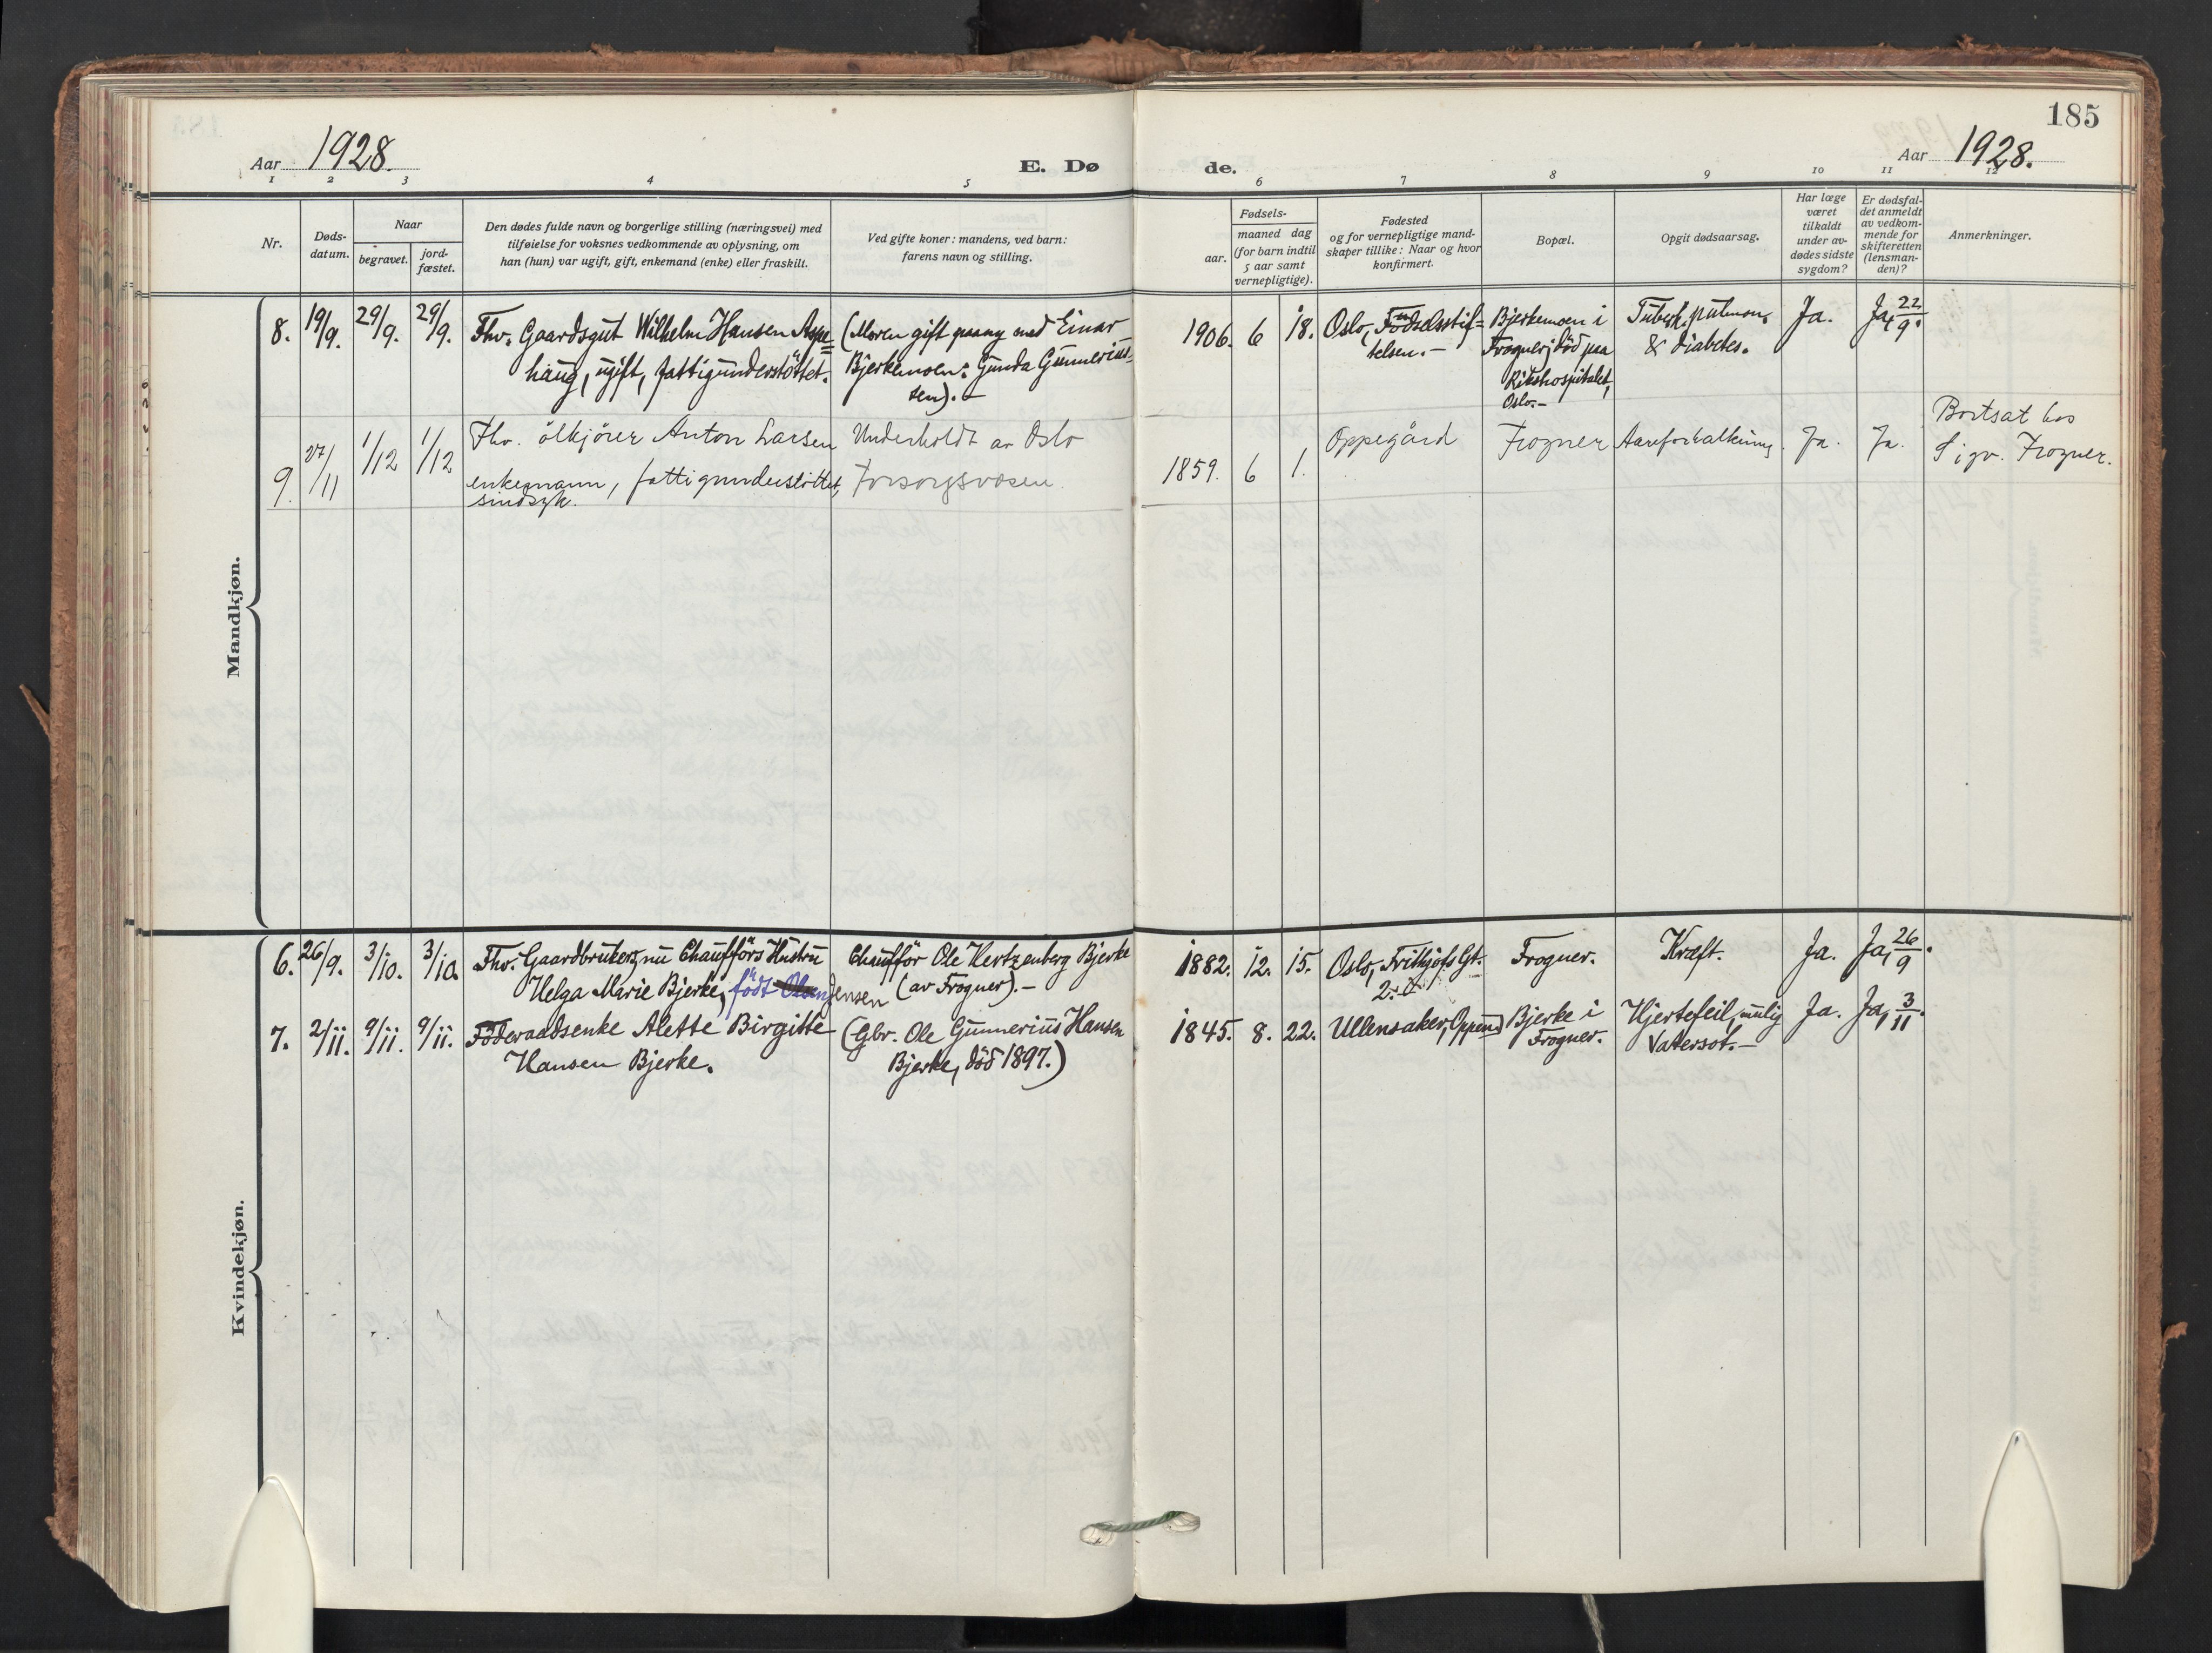 185
Aar 1928.
E. Døde.
Aar 1928.
1 2 3 4 5 6 7 8 9 10 11 12
Nr.
Døds-
datum.
Naar
begravet.
jord-
fæstet.
Den dødes fulde navn og borgerlige stilling (næringsvei) med
tilføielse for voksnes vedkommende av oplysning, om
han (hun) var ugift, gift, enkemand (enke) eller fraskilt.
Ved gifte koner: mandens, ved barn:
farens navn og stilling.
Fødsels-
aar.
maaned dag
(for barn indtil
5 aar samt
vernepligtige).
Fødested
og for vernepligtige mand-
skaper tillike: Naar og hvor
konfirmert.
Bopæl.
Opgit dødsaarsag.
Har læge
været
tilkaldt
under av-
dødes sidste
sygdom?
Er dødsfal-
det anmeldt
av vedkom-
mende for
skifteretten
(lensman-
den)?
Anmerkninger.
Mandkjøn.
8. 19/9. 29/9. 29/9.
Fhv. Gaardsgut Wilhelm Hansen Aspe=
haug, ugift, fattigunderstöttet.
(Moren gift paany med Einar
Bjerkemoen: Gunda Gunnerius-
sen).-
1906. 6 18.
Oslo, Födselsstif=
telsen.-
Bjerkemoen i
Frogner; död paa
Rikshospitalet,
Oslo.-
Tuberk. pulmon.
& diabetes.
Ja.
Ja, 22/9.
9. 27/11 1/12 1/12
Fhv. ölkjörer Anton Larsen
enkemann, fattigunderstöttet,
sindsyk.
Underholdt av Oslo
Forsorgsvæsen.
1859. 6 1.
Oppegård
Frogner
Aareforkalkning.
Ja.
Ja.
Bortsat hos
Sigv. Frogner.
Kvindekjøn.
6. 26/9. 3/10. 3/10.
Fhv. Gaardbrukers, nu Chaufförs Hustru
Helga Marie Bjerke, födt Olsen Jensen
Chaufför Ole Hertzenberg Bjerke
(av Frogner).-
1882. 12. 15.
Oslo, Frithjofs Gt.
2.
Frogner.
Kræft.
Ja.
Ja, 26/9.
7. 2/11. 9/11. 9/11.
Föderaadsenke Alette Birgitte
Hansen Bjerke.
(Gbr. Ole Gunnerius Hansen
Bjerke, död 1897.)
1845. 8. 22.
Ullensaker, Oppen
Bjerke i
Frogner.
Hjertefeil, mulig
Vatersot.-
Ja.
Ja, 3/11.